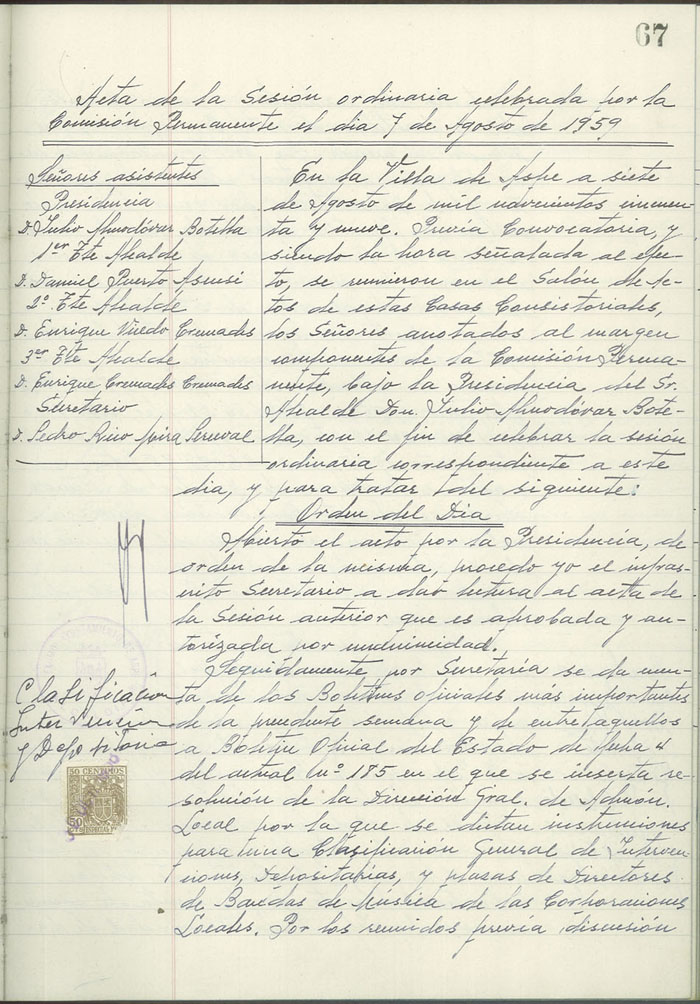 67
Acta de la Sesión ordinaria celebrada por la
Comisión Permanente el dia 7 de Agosto de 1959
Señores asistentes
Presidencia
D. Julio Almodóvar Botella
1er Tte Alcalde
D. Daniel Puerto Asensi
2º Tte Alcalde
D. Enrique Cremades
3er Tte Alcalde
D. Enrique Cremades Cremades
Secretario
D. Pedro Rico Mira Perceval
En la Villa de Aspe a siete
de Agosto de mil novecientos cincuen-
ta y nueve. Previa Convocatoria, y
siendo la hora señalada al efec-
to, se reunieron en el Salón de Ac-
tos de estas Casas Consistoriales,
los Señores anotados al margen
componentes de la Comisión Perma-
nente, bajo la Presidencia del Sr.
Alcalde Don Julio Almodóvar Bote-
lla, con el fin de celebrar la sesión
ordinaria correspondiente a este
dia, y para tratar del siguiente:
Orden del Dia
Abierto el acto por la Presidencia, de
orden de la misma, procedo yo el infras-
crito Secretario a dar lectura al acta de
la Sesión anterior que es aprobada y au-
torizada por unanimidad.
Seguidamente por Secretaría se da cuen-
ta de los Boletines oficiales más importantes
de la precedente semana y de entre aquellos
a Boletin Oficial del Estado de fecha 4
del actual nº 185 en el que se inserta re-
solución de la Dirección Gral. de Admón.
Local por la que se dictan instrucciones
para una Clasificación General de Interven-
ciones, Depositarías, y plazas de Directores
de Bandas de Música de las Corporaciones
Locales. Por los reunidos previa discusión
Clasificación
Intervención
y Depositaria
50 CENTIMOS